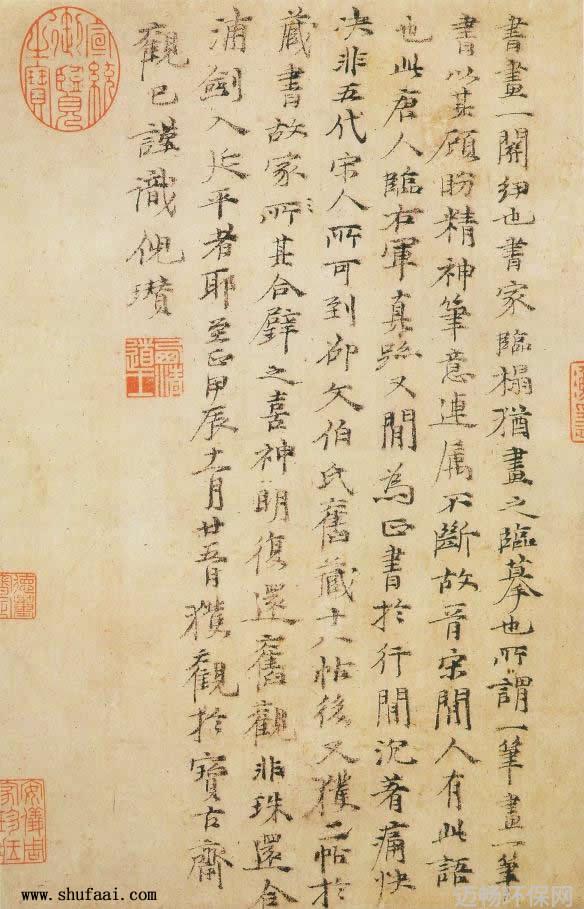 書畫一關紐也書家臨搨猶畫之臨摹也所謂一筆畫一筆
書以其顧盼精神筆意連属不斷故晉宋間人有此語
也此唐人臨右軍真跡又間為正書於行間沉着痛快
决非五代宋人所可到邵文伯氏舊藏十八帖後又獲二帖於
藏書故家所〻其合璧之喜神明復還舊觀非珠還合
浦劍入延平者耶至正甲辰十一月廿五日獲觀於寶古齋
觀已謹識倪瓚
宣統御覽之寶
安儀周家珍藏
www.shufaai.com
迈畅环保网